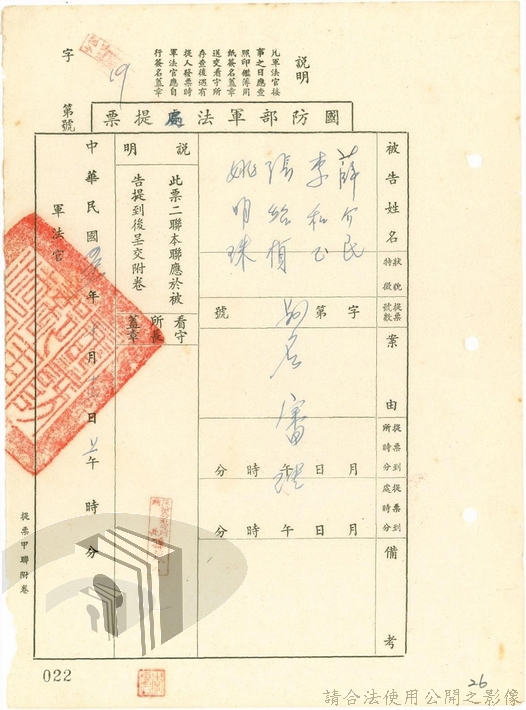 說明
凡軍法官接
事之日應查
照印鑑簿用
紙簽名蓋章
送交看守所
存查後遇有
提人發票時
軍法官應自
行簽名蓋章
字 第 號
19
國防部軍法處提票
被告姓名
薛介民
李和玉
張給楨
姚明珠
狀貌特徵
提票號數
字 第 號
案由
審理
提票到所時分
月 日 午 時 分
提票到處時分
月 日 午 時 分
備考
說明
此票二聯本聯應於被
告提到後呈交附卷
看守所長蓋章
中華民國 年 月 日 上午 時 分
軍法官
提票甲聯附卷
022
26
請合法使用公開之影像